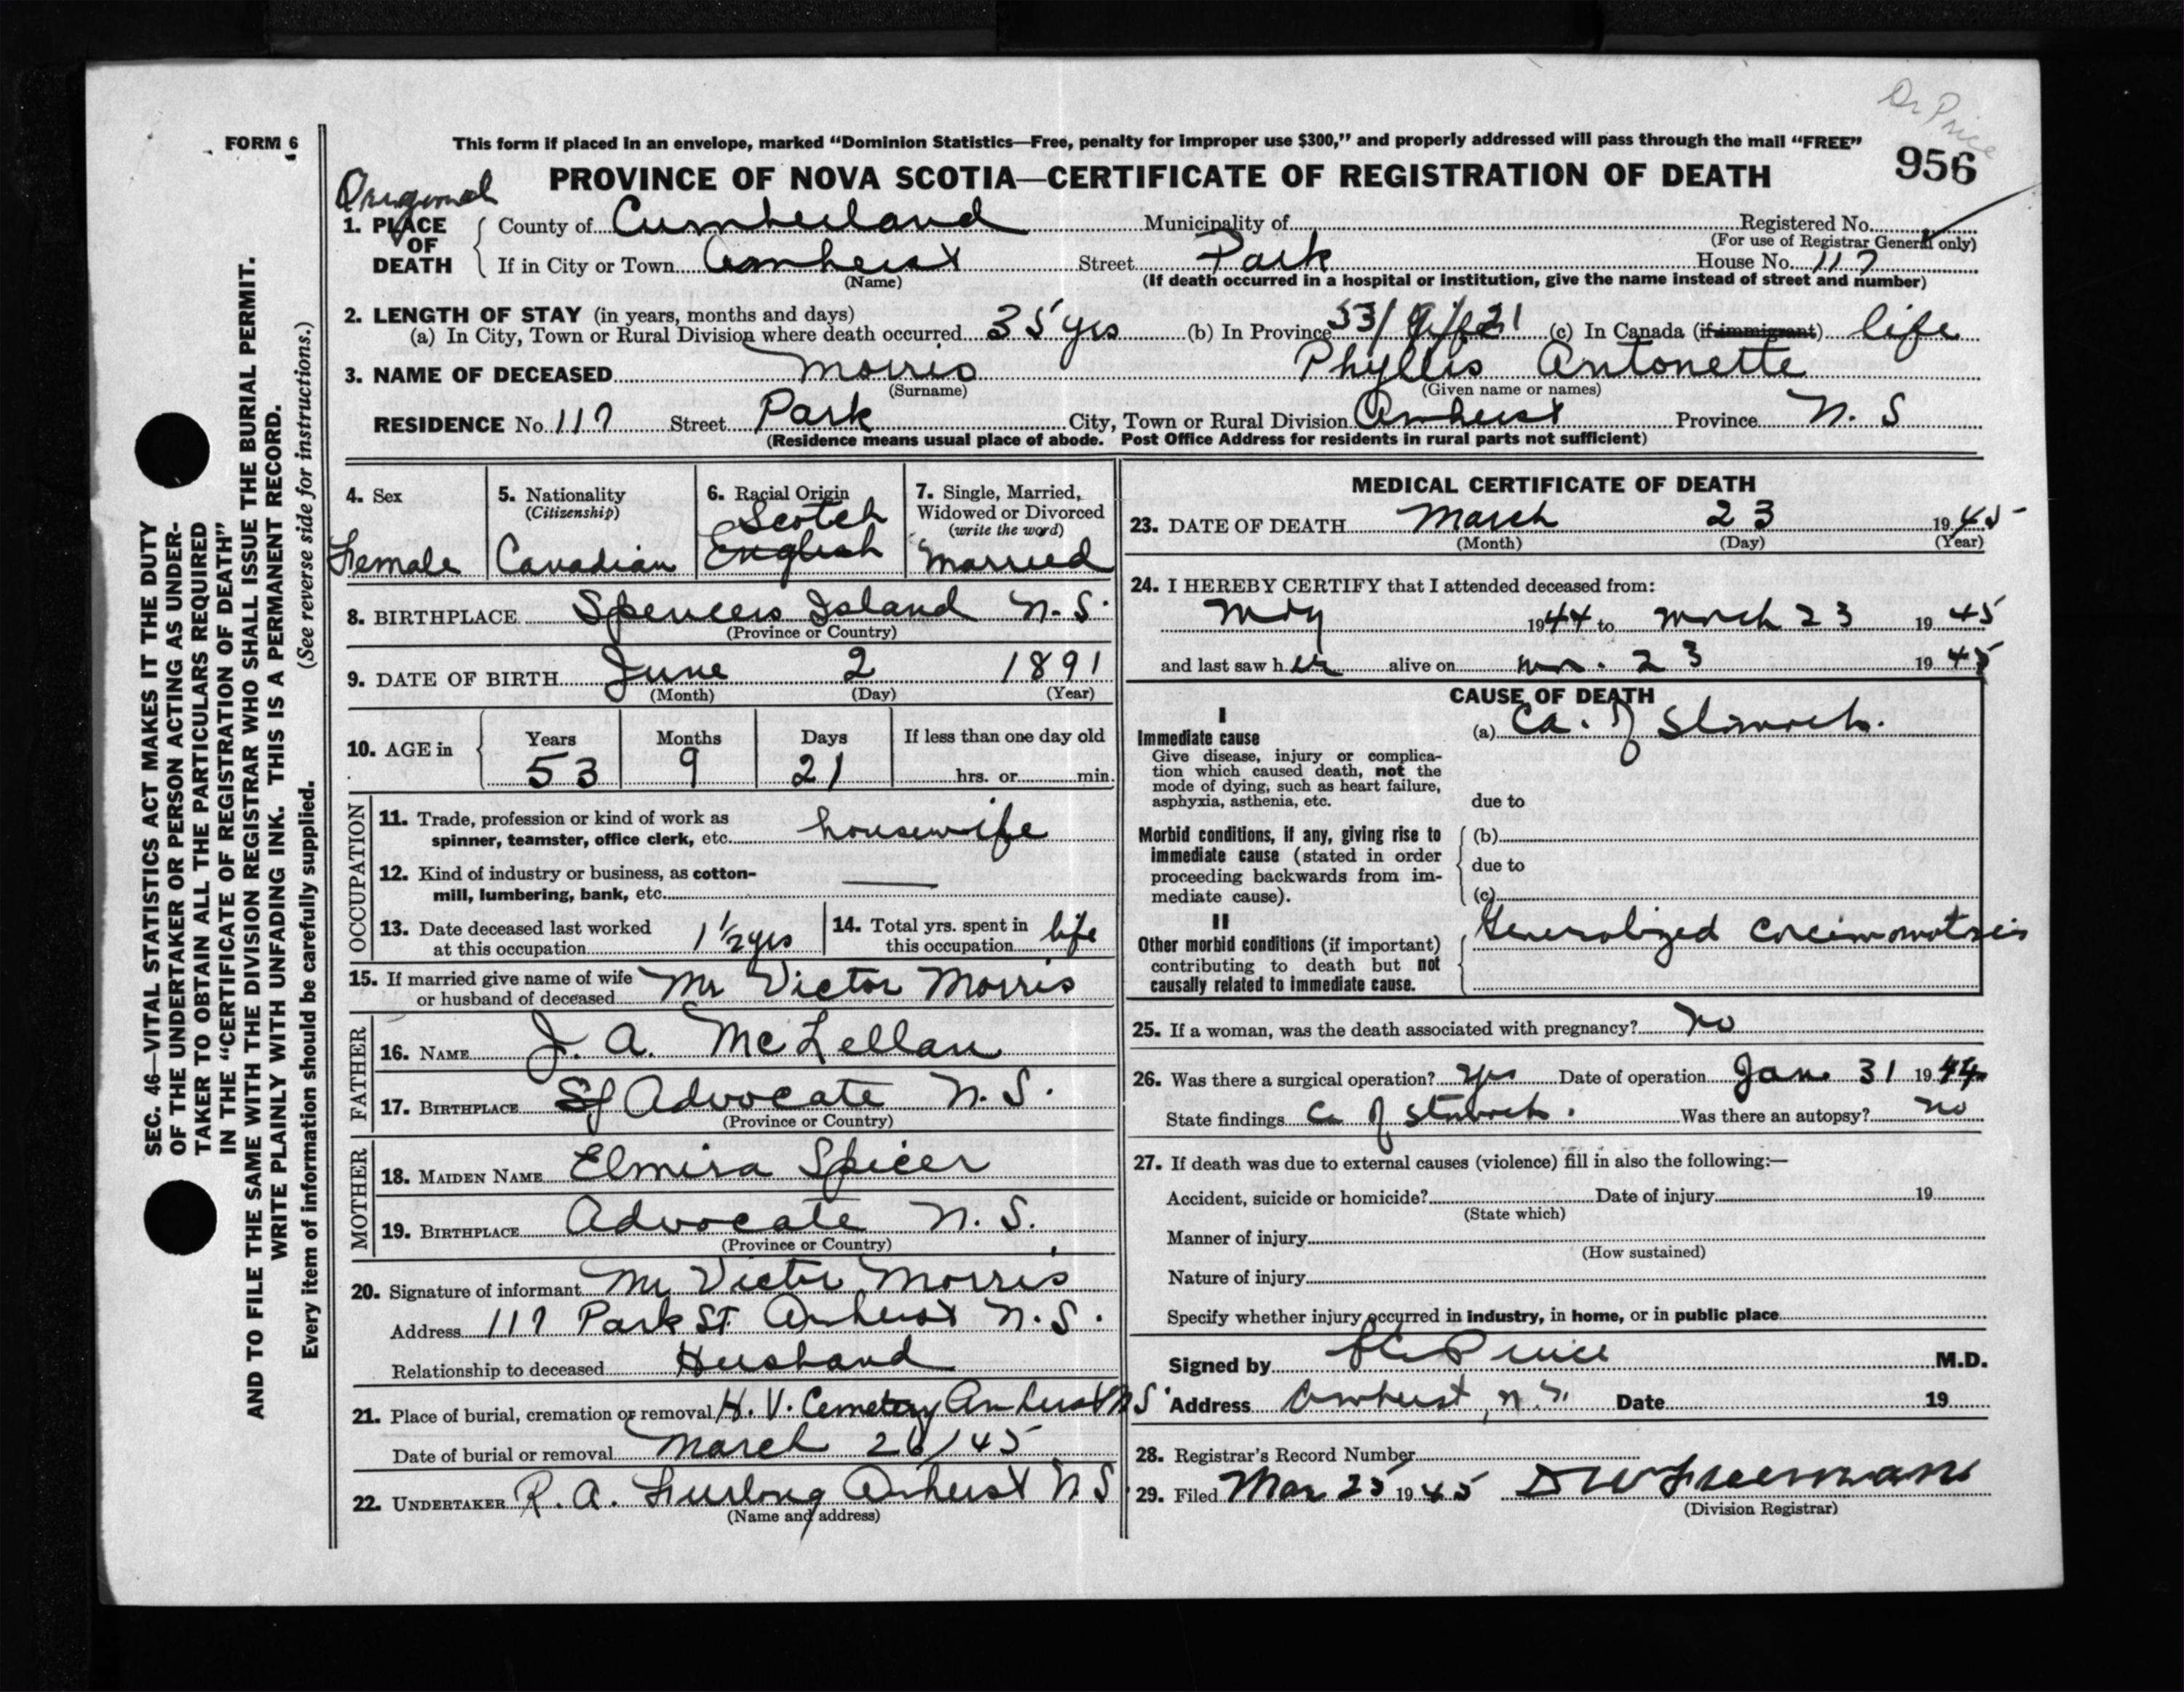 Dr Price
FORM 6
This form if placed in an envelope, marked “Dominion Statistics—Free, penalty for improper use $300,” and properly addressed will pass through the mail “FREE”
956
Original
PROVINCE OF NOVA SCOTIA—CERTIFICATE OF REGISTRATION OF DEATH
1. PLACE OF DEATH
County of Cumberland Municipality of Registered No.
(For use of Registrar General only)
If in City or Town Amherst Street Park House No. 117
(Name) (If death occurred in a hospital or institution, give the name instead of street and number)
2. LENGTH OF STAY (in years, months and days)
(a) In City, Town or Rural Division where death occurred 35 yrs (b) In Province 53/9/21 (c) In Canada (if immigrant) life
3. NAME OF DECEASED Morris Phyllis Antonette
(Surname) (Given name or names)
RESIDENCE No. 117 Street Park City, Town or Rural Division Amherst Province N. S
(Residence means usual place of abode. Post Office Address for residents in rural parts not sufficient)
4. Sex
Female
5. Nationality
(Citizenship)
Canadian
6. Racial Origin
Scotch
English
7. Single, Married,
Widowed or Divorced
(write the word)
Married
8. BIRTHPLACE Spencers Island N. S.
(Province or Country)
9. DATE OF BIRTH June 2 1891
(Month) (Day) (Year)
10. AGE in
Years Months Days If less than one day old
53 9 21 hrs. or min.
OCCUPATION
11. Trade, profession or kind of work as
spinner, teamster, office clerk, etc. housewife
12. Kind of industry or business, as cotton-
mill, lumbering, bank, etc. —
13. Date deceased last worked
at this occupation 1 1/2 yrs
14. Total yrs. spent in
this occupation life
15. If married give name of wife
or husband of deceased Mr Victor Morris
FATHER
16. NAME J. A. McLellan
17. BIRTHPLACE Advocate N. S.
(Province or Country)
MOTHER
18. MAIDEN NAME Elmira Spicer
19. BIRTHPLACE Advocate N. S.
(Province or Country)
20. Signature of informant Mr Victor Morris
Address 117 Park ST. Amherst N. S.
Relationship to deceased Husband
21. Place of burial, cremation or removal H. V. Cemetery Amherst NS
Date of burial or removal March 26/45
22. UNDERTAKER R. A. Furlong Amherst N S
(Name and address)
MEDICAL CERTIFICATE OF DEATH
23. DATE OF DEATH March 23 1945
(Month) (Day) (Year)
24. I HEREBY CERTIFY that I attended deceased from:
May 1944 to March 23 1945
and last saw her alive on Mar. 23 1945
CAUSE OF DEATH
I
Immediate cause
Give disease, injury or complica-
tion which caused death, not the
mode of dying, such as heart failure,
asphyxia, asthenia, etc.
(a) Ca. of Stomach.
due to
Morbid conditions, if any, giving rise to
immediate cause (stated in order
proceeding backwards from im-
mediate cause).
(b)
due to
(c)
II
Other morbid conditions (if important)
contributing to death but not
causally related to immediate cause.
Generalized Carcinomatosis
25. If a woman, was the death associated with pregnancy? No
26. Was there a surgical operation? yes Date of operation Jan. 31 1944
State findings Ca of stomach. Was there an autopsy? no
27. If death was due to external causes (violence) fill in also the following:—
Accident, suicide or homicide? Date of injury 19
(State which)
Manner of injury
(How sustained)
Nature of injury
Specify whether injury occurred in industry, in home, or in public place
Signed by Price M.D.
Address Amherst, N.S. Date 19
28. Registrar's Record Number
29. Filed Mar 25 1945 D W Freeman
(Division Registrar)
SEC. 46—VITAL STATISTICS ACT MAKES IT THE DUTY
OF THE UNDERTAKER OR PERSON ACTING AS UNDER-
TAKER TO OBTAIN ALL THE PARTICULARS REQUIRED
IN THE “CERTIFICATE OF REGISTRATION OF DEATH”
AND TO FILE THE SAME WITH THE DIVISION REGISTRAR WHO SHALL ISSUE THE BURIAL PERMIT.
WRITE PLAINLY WITH UNFADING INK. THIS IS A PERMANENT RECORD.
Every item of information should be carefully supplied. (See reverse side for instructions.)